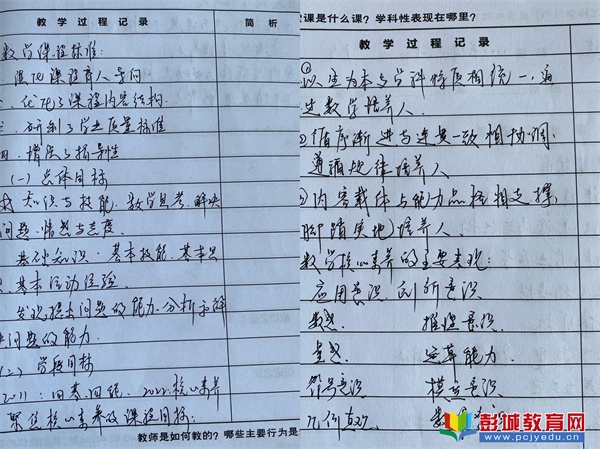 教学过程记录
简析
数学课程标准:
强化课程育人导向
二、优化了课程内容结构
三、研制了学业质量标准
四、增强了指导性
(一)总体目标
知识与技能、数学思考、解决
问题、情感与态度
基础知识、基本技能、基本思
基本活动经验
发现提出问题的能力、分析和解
决问题的能力.
(二)学段目标
2011:四基、四能、2022:核心素养
聚焦核心素养的课程目标:
教师是如何教的?哪些主要行为是
课是什么课?学科性表现在哪里?
教学过程记录
①以生为本与学科特质相统一,通
过数学培养人.
②循序渐进与连贯一致相协调,
遵循规律培养人
③内容载体与能力品格相支撑,
脚踏实地培养人.
数学核心素养的主要表现:
应用意识、创新意识
数感、 推理意识、
量感、 运算能力、
符号意识 模型意识、
几何直观、 数据意识
彭城教育网
www.pcjyedu.cn